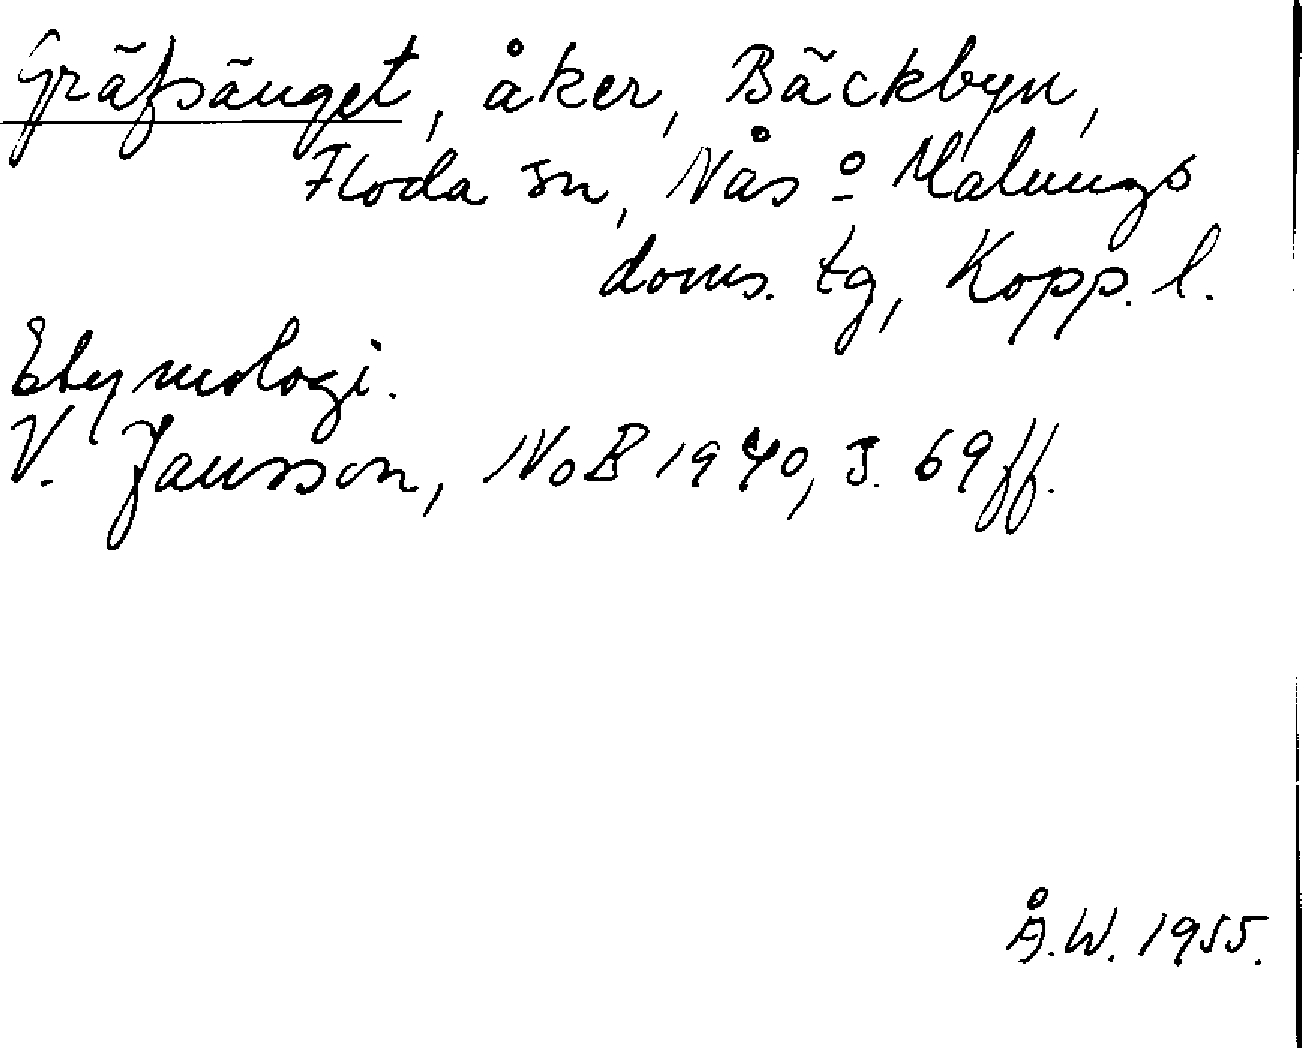 Gräfsänget, åker, Bäckbyn,
Floda sn, Nås o Malungs
doms. tg, Kopp. l.
Etymologi.
V. Jansson, NoB 1940, s. 69 ff.
Å.W. 1955.